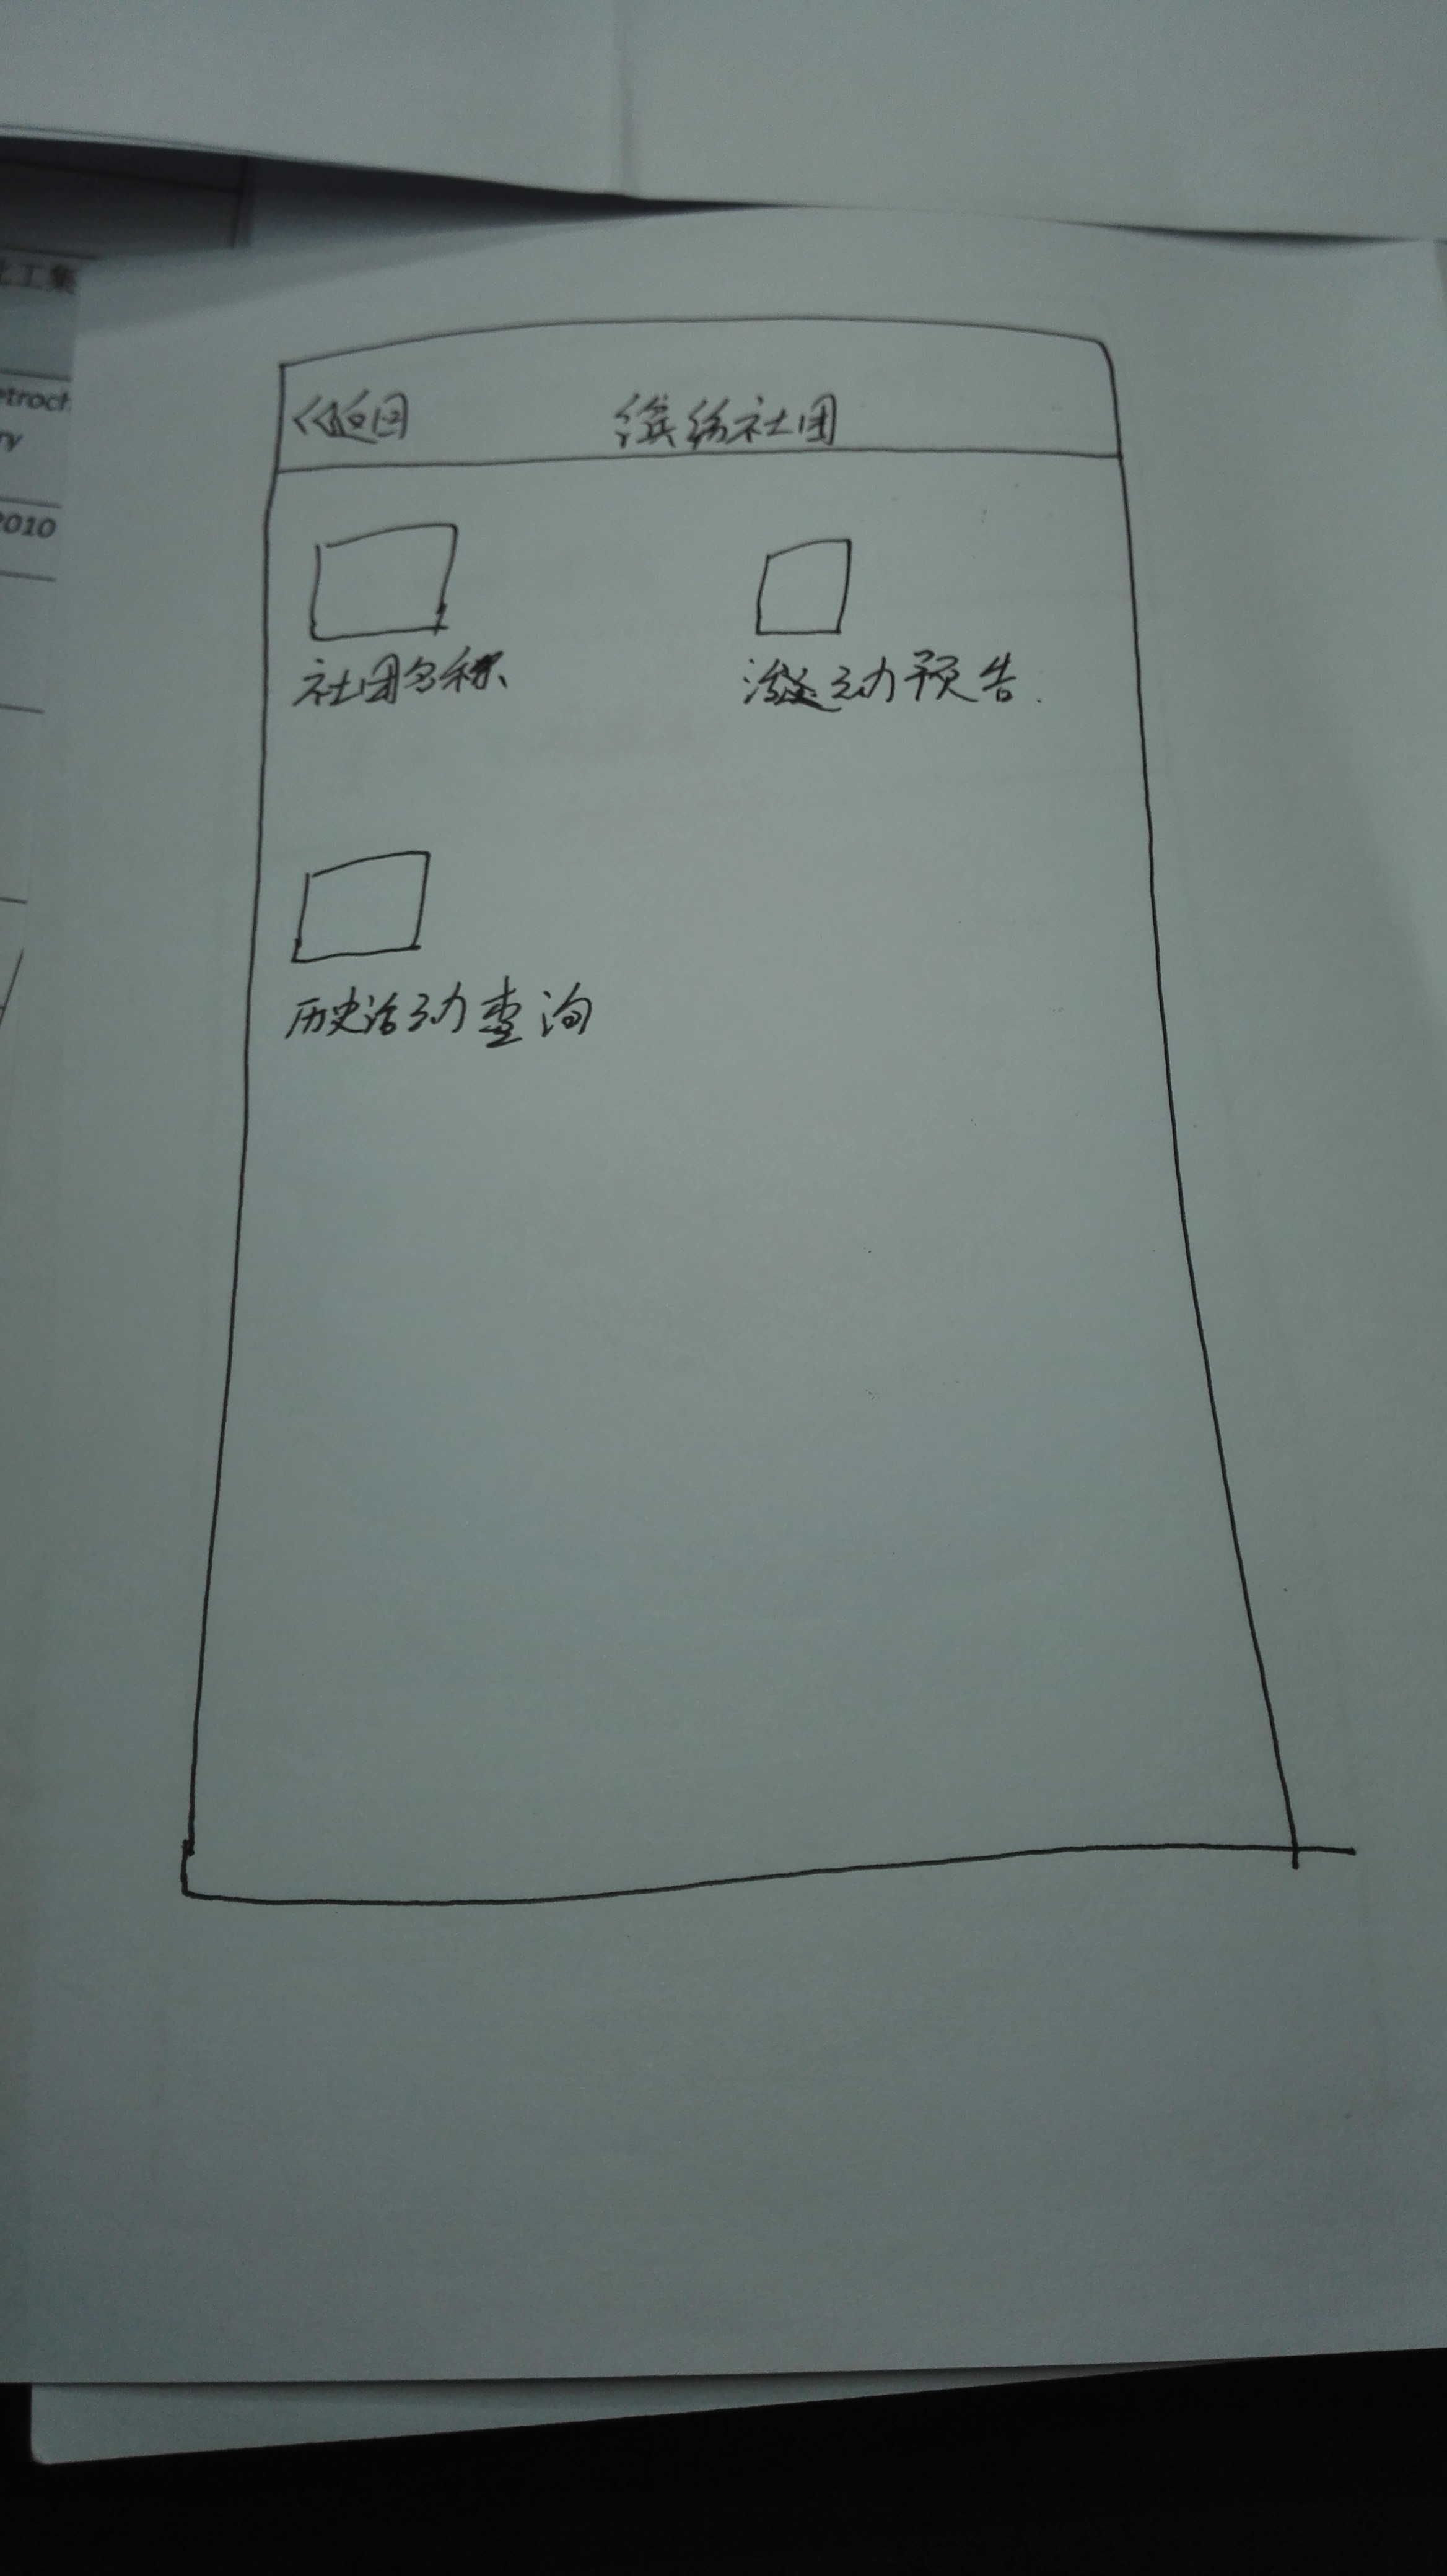 化工集
etroch
ry
2010
<<返回 缤纷社团
社团名称 活动预告.
历史活动查询